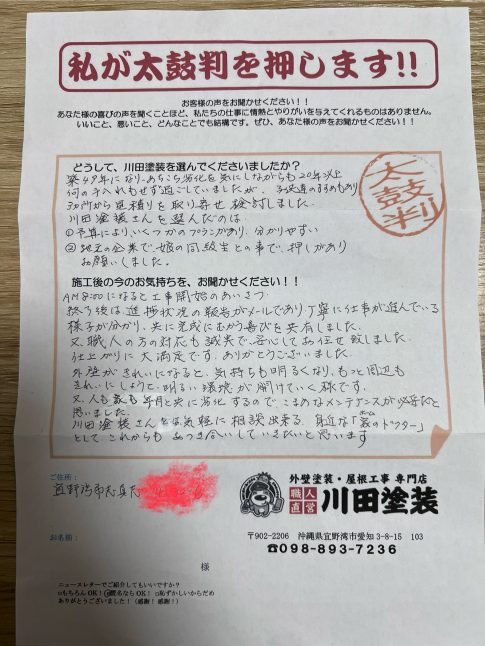 私が太鼓判を押します!!
お客様の声をお聞かせください！！
あなた様の喜びの声を聞くことほど、私たちの仕事に情熱とやりがいを与えてくれるものはありません。
いいこと、悪いこと、どんなことでも結構です。ぜひ、あなた様の声をお聞かせください！！
どうして、川田塗装を選んでくださいましたか？
太鼓判
築49年になり、あちこち劣化を気にしながらも20年以上
何の手入れもせず過ごしていましたが、子供達のすすめもあり
3カ所から見積りを取り寄せ検討しました。
川田塗装さんを選んだのは
①予算により、いくつかのプランがあり、分かりやすい
②地元の企業で、娘の同級生との事で、押しがあり
お願いしました。
施工後の今のお気持ちを、お聞かせください！！
AM8:00になると工事開始のあいさつ
終了後は、進捗状況の報告がメールであり、丁寧に仕事が進んでいる
様子が分かり、共に完成にむかう喜びを共有しました。
又、職人の方の対応も誠実で、安心してお任せ致しました。
仕上がりに大満足です。ありがとうございました。
外壁がきれいになると、気持ちも明るくなり、もっと周辺も
きれいにしようと明るい環境が開けていく様です。
又、人も家も年月と共に劣化するので、こまめなメンテナンスが必要だと
思いました。
川田塗装さんは気軽に相談出来る、身近な「家のドクター」
として、これからもお付き合いしていきたいと思います
ご住所：
宜野湾市志真志
お名前：
様
職人直営
外壁塗装・屋根工事 専門店
川田塗装
〒902-2206 沖縄県宜野湾市愛知3-8-15 103
☎098-893-7236
ニュースレターでご紹介してもいいですか？
□もちろんOK！ □匿名ならOK！ □恥ずかしいからだめ
ありがとうございました！（感謝！感謝！）